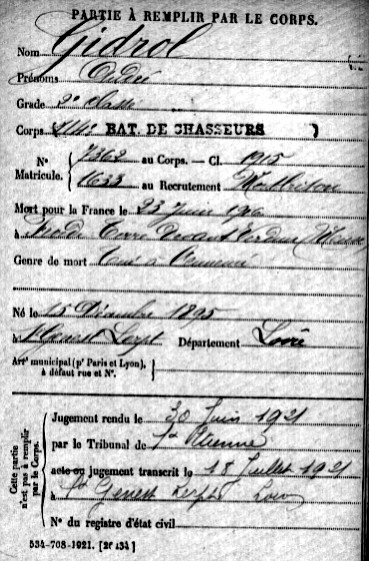 PARTIE À REMPLIR PAR LE CORPS.
Nom Gidrol
Prénoms André
Grade 2e Classe
Corps BAT. DE CHASSEURS
N° Matricule. 7362 au Corps. — Cl. 1915
1633 au Recrutement Montbrison
Mort pour la France le 23 Juin 1916
à devant Verdun Meuse
Genre de mort Tué à l'ennemi
Né le 15 Décembre 1895
à St Genest Lerpt Département Loire
Arrt municipal (pr Paris et Lyon), à défaut rue et N°.
Cette partie n'est pas à remplir par le Corps.
Jugement rendu le 30 Juin 1921
par le Tribunal de St Etienne
acte ou jugement transcrit le 18 Juillet 1921
à St Genest Lerpt Loire
N° du registre d'état civil
534-708-1921. [26434]